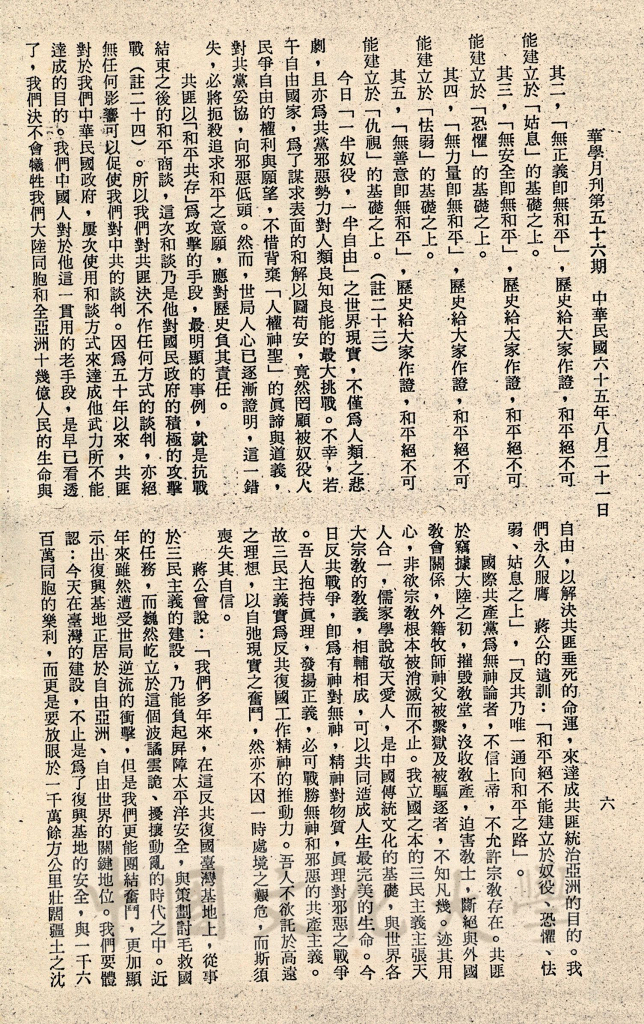 華學月刊第五十六期　中華民國六十五年八月二十一日
六
其二，「無正義卽無和平」，歷史給大家作證，和平絕不可
能建立於「姑息」的基礎之上。
其三，「無安全卽無和平」，歷史給大家作證，和平絕不可
能建立於「恐懼」的基礎之上。
其四，「無力量卽無和平」，歷史給大家作證，和平絕不可
能建立於「怯弱」的基礎之上。
其五，「無善意卽無和平」，歷史給大家作證，和平絕不可
能建立於「仇視」的基礎之上。（註二十三）
今日「一半奴役，一半自由」之世界現實，不僅爲人類之悲
劇，且亦爲共黨邪惡勢力對人類良知良能的最大挑戰。不幸，若
干自由國家，爲了謀求表面的和解以圖苟安，竟然罔顧被奴役人
民爭自由的權利與願望，不惜背棄「人權神聖」的眞諦與道義，
對共黨妥協，向邪惡低頭。然而，世局人心已逐漸證明，這一錯
失，必將扼殺追求和平之意願，應對歷史負其責任。
共匪以「和平共存」爲攻擊的手段，最明顯的事例，就是抗戰
結束之後的和平商談，這次和談乃是他對國民政府的積極的攻擊
戰（註二十四）。所以我們對共匪決不作任何方式的談判，亦絕
無任何影響可以促使我們對中共的談判。因爲五十年以來，共匪
對於我們中華民國政府，屢次使用和談方式來達成他武力所不能
達成的目的。我們中國人對於他這一貫用的老手段，是早已看透
了，我們決不會犧牲我們大陸同胞和全亞洲十幾億人民的生命與
自由，以解決共匪垂死的命運，來達成共匪統治亞洲的目的。我
們永久服膺　蔣公的遺訓：「和平絕不能建立於奴役、恐懼、怯
弱、姑息之上」，「反共乃唯一通向和平之路」。
國際共產黨爲無神論者，不信上帝，不允許宗教存在。共匪
於竊據大陸之初，摧毀教堂，沒收教產，迫害教士，斷絕與外國
教會關係，外籍牧師神父被繫獄及被驅逐者，不知凡幾。迹其用
心，非欲宗教根本被消滅而不止。我立國之本的三民主義主張天
人合一，儒家學說敬天愛人，是中國傳統文化的基礎，與世界各
大宗教的教義，相輔相成，可以共同造成人生最完美的生命。今
日反共戰爭，卽爲有神對無神，精神對物質，眞理對邪惡之戰爭
。吾人抱持眞理，發揚正義，必可戰勝無神和邪惡的共產主義。
故三民主義實爲反共復國工作精神的推動力。吾人不欲託於高遠
之理想，以自弛現實之奮鬥，然亦不因一時處境之艱危，而斯須
喪失其自信。
蔣公曾說：「我們多年來，在這反共復國臺灣基地上，從事
於三民主義的建設，乃能負起屏障太平洋安全，與策劃討毛救國
的任務，而巍然屹立於這個波譎雲詭、擾攘動亂的時代之中。近
年來雖然遭受世局逆流的衝擊，但是我們更能團結奮鬥，更加顯
示出復興基地正居於自由亞洲、自由世界的關鍵地位。我們要體
認：今天在臺灣的建設，不止是爲了復興基地的安全，與一千六
百萬同胞的樂利，而更是要放眼於一千萬餘方公里壯闊疆土之沈
中國文化大學